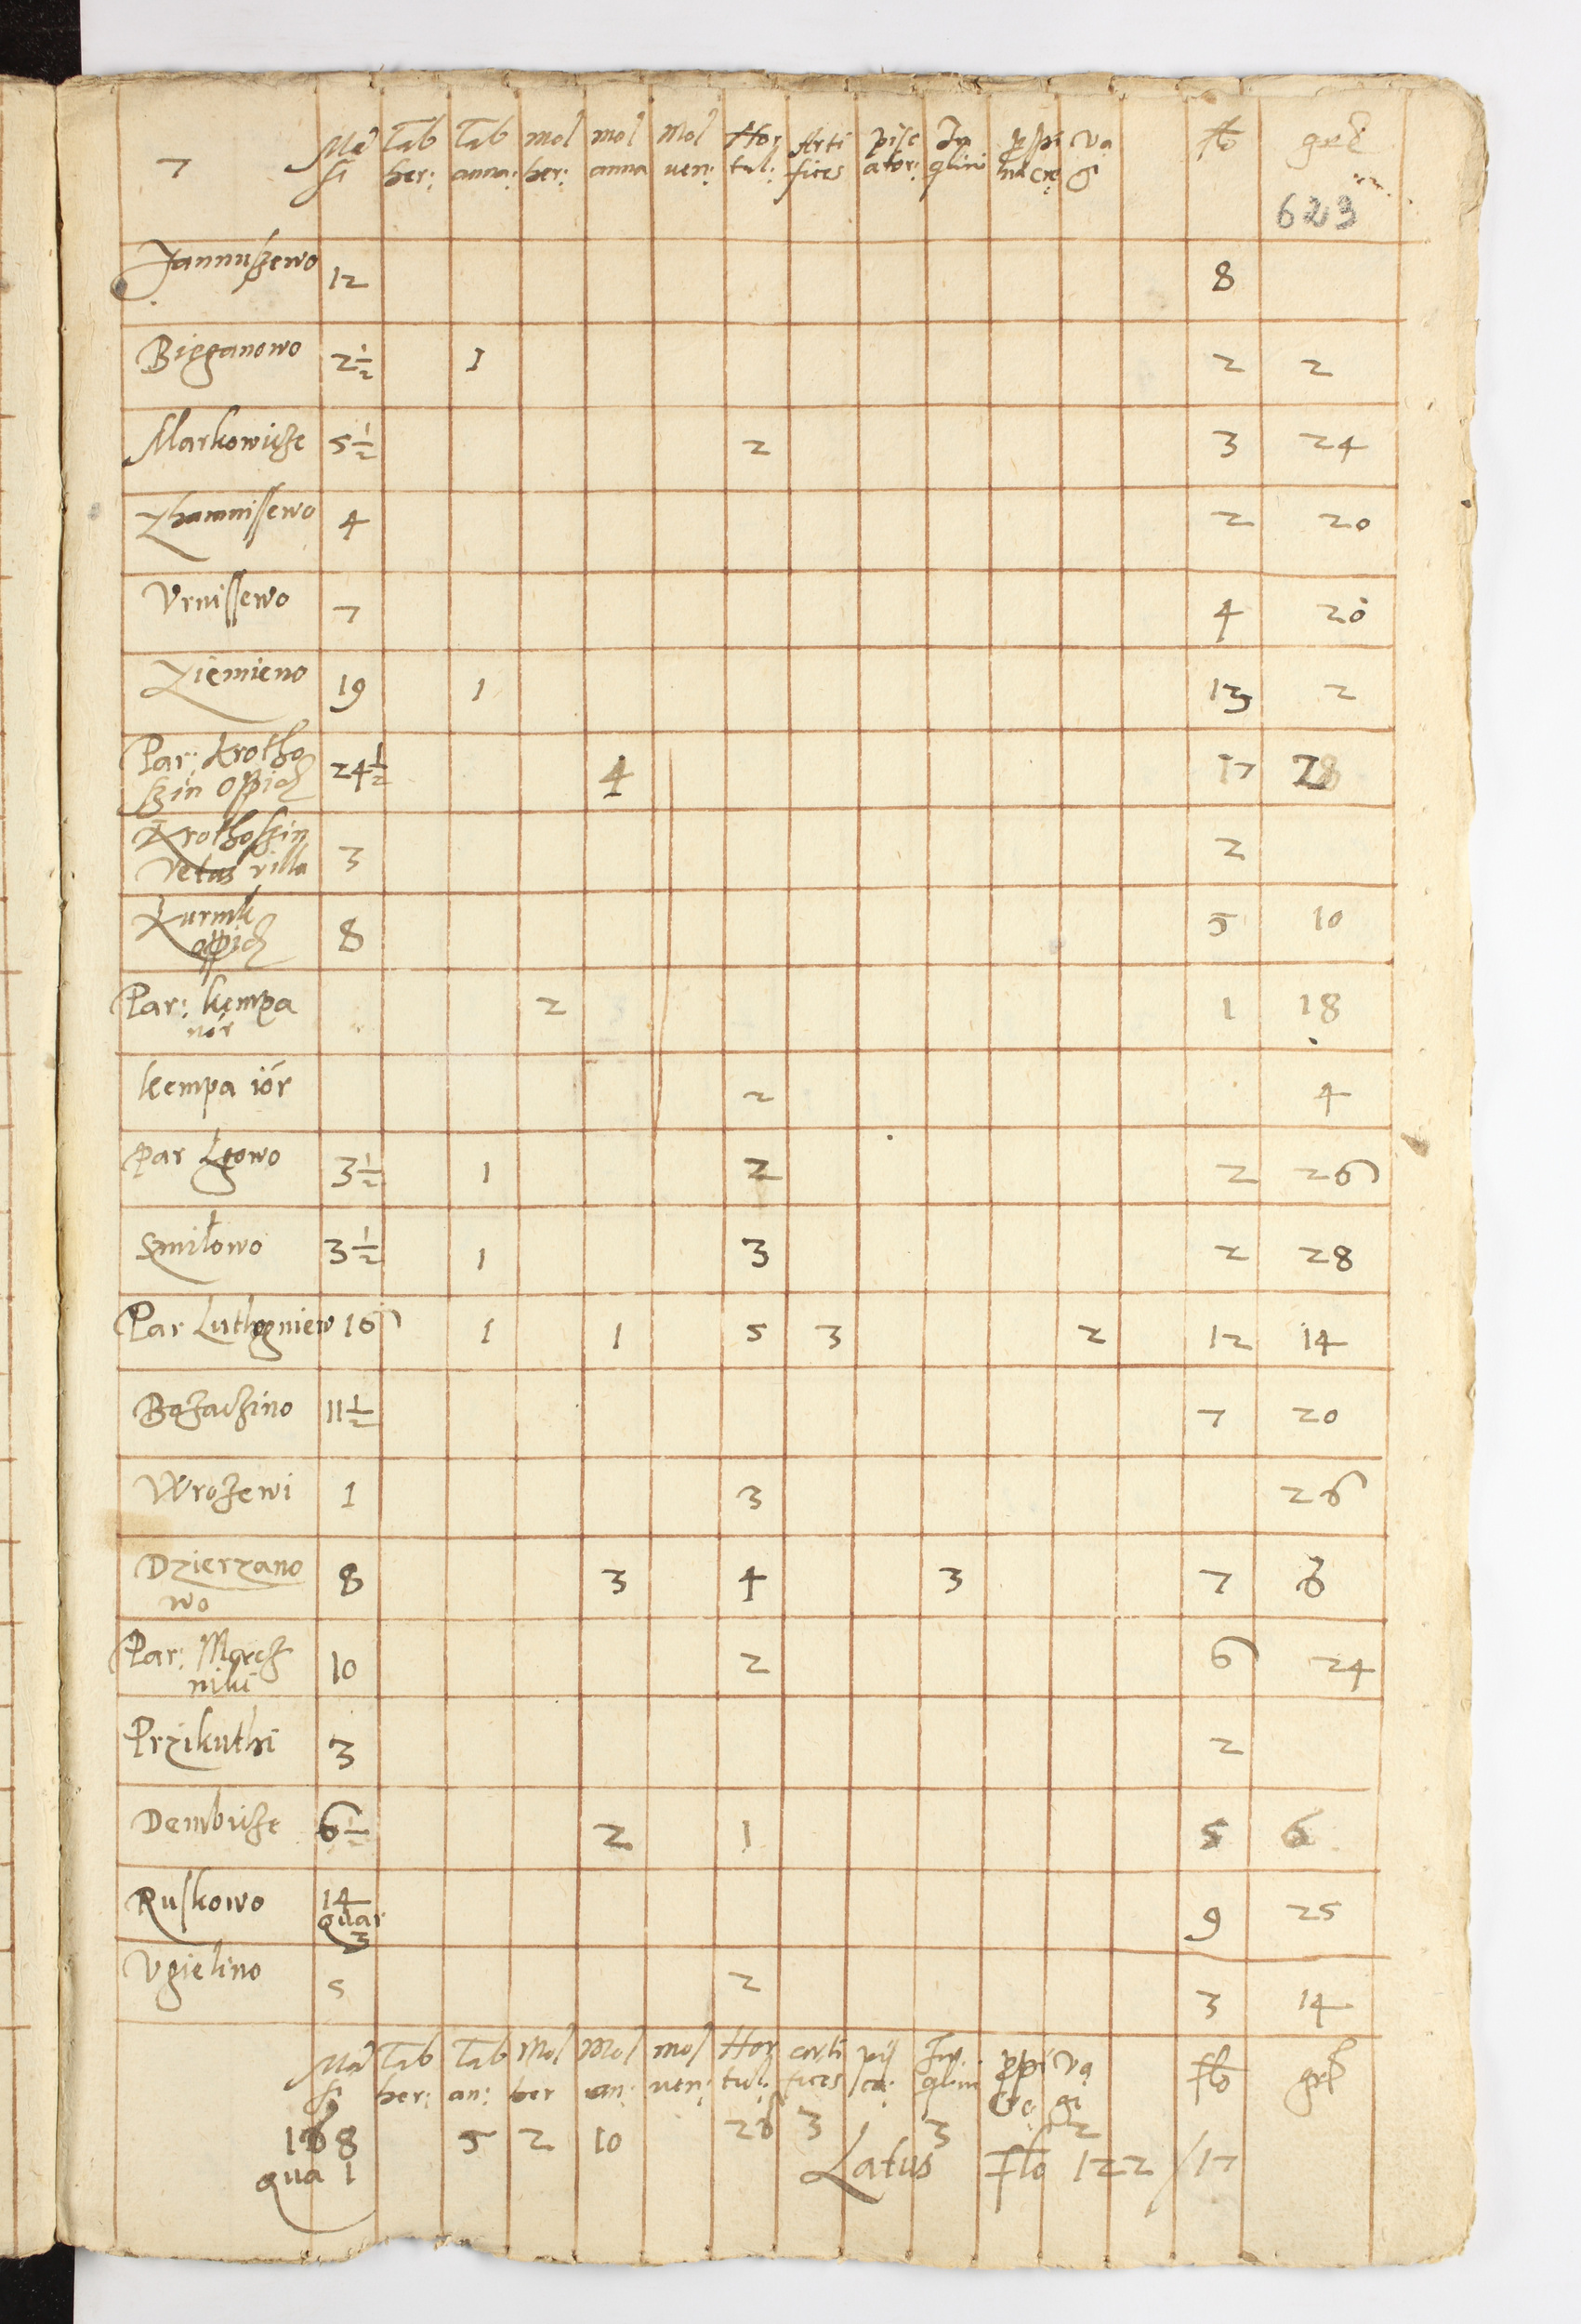 7 Man Tab Tab mol mol Mol Hor Arti pisc In ppi va flo gros
si her: anna: her: anna uen: tul: fices ator: qlini nacre gi
623
Jannuszewo 12 8
Bieganowo 2 1/2 1 2 2
Markowicze 5 1/2 2 3 24
Zhamnissewo 4 2 20
Vrnissewo 7 4 20
Ziemieno 19 1 13 2
Par: Krotho
szin oppid 24 1/2 4 17 28
Krothoszin
vetus villa 3 2
Kurnik
oppid 8 5 10
Par: kempa
nor 2 1 18
kempa ior 2 4
par Lgowo 3 1/2 1 2 2 26
Smiłowo 3 1/2 1 3 2 28
Par Luthogniew 16 1 1 5 3 2 12 14
Bozaczino 11 1/2 7 20
Wrozewi 1 3 26
Dzierzano
wo 8 3 4 3 7 8
Par: Morcz
niki 10 2 6 24
Przikuthi 3 2
Dembicze 6 1/2 2 1 5 6
Ruskowo 14 quar 3 9 25
Vgielino 5 2 3 14
Man Tab Tab Mol Mol mol Hor arti pis In ppi va flo gros
si her: an: ber an: uen: tul: fices ca: qlini cre: gi
168 5 2 10 26 3 3 2
qua 1 Latus Flo 122 /17